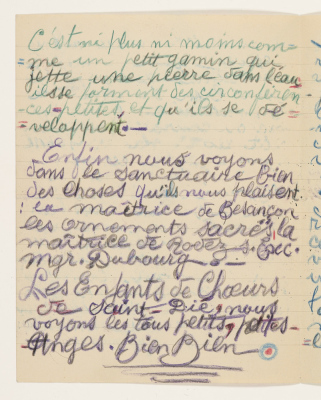 C'est ni plus ni moins com=
=me un petit gamin qui
jette une pierre dans l'eau,
ils se forment des circonféren
=ces petites, et qu'ils se dé
=veloppent.—
Enfin nous voyons
dans le sanctuaire bien
des choses qu'ils nous plaisent.
: la maîtrice de Besançon
les ornements sacrés, la
maîtrice de Rodez, s. Exc.
mgr. Dubourg
Les Enfants de Chœurs
de Saint-Dié, nous
voyons les tous petits, petites-
Anges. Bien Bien